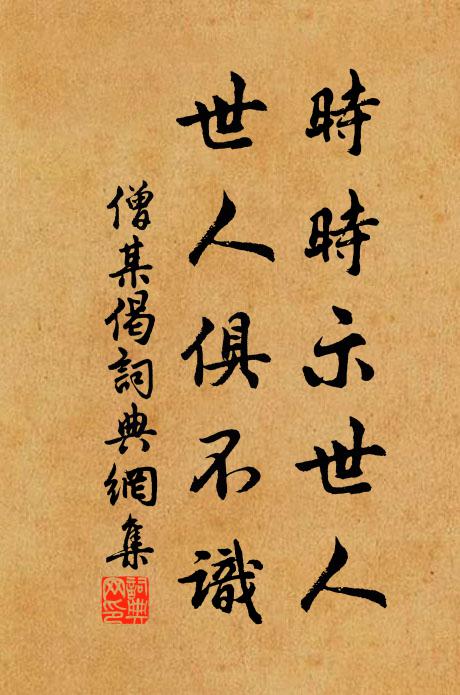 時時示世人
世人俱不識
僧某偈詞典網集
詞典
网印